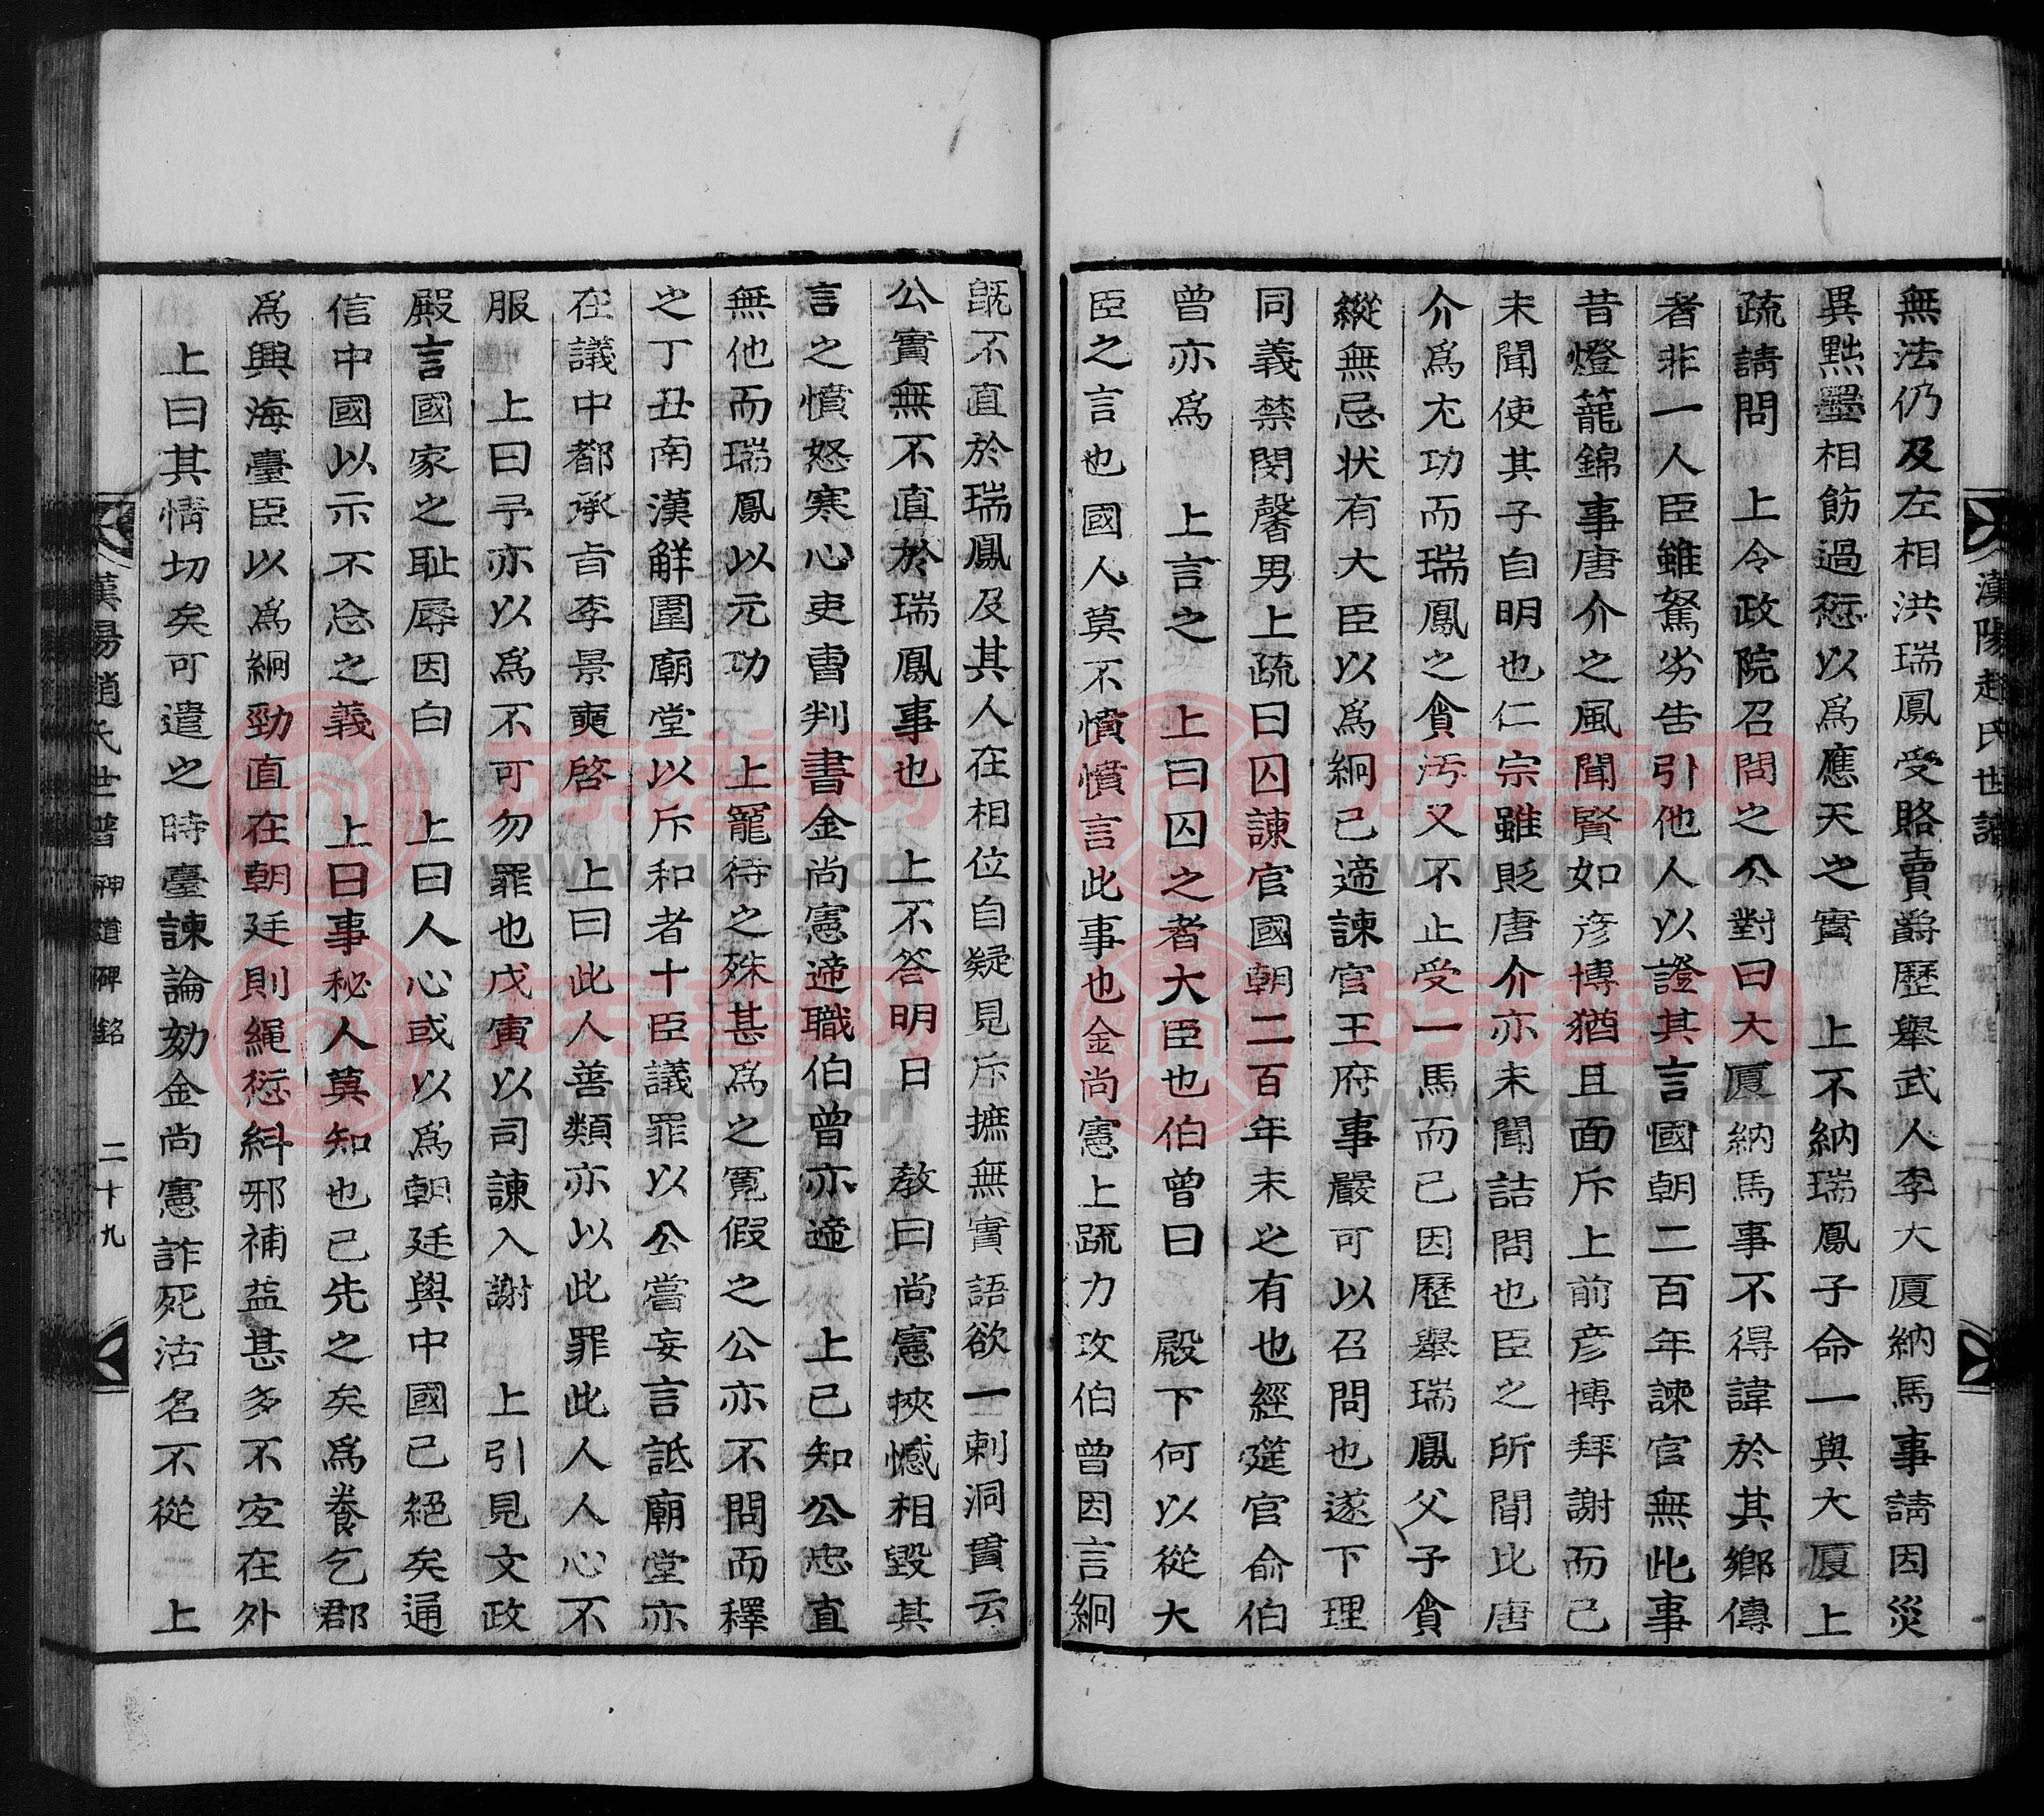 無法仍及左相洪瑞鳳受賂賣爵歷舉武人李大厦納馬事請因災
異黜墨相飭過愆以爲應天之實 上不納瑞鳳子命一與大厦上
疏請問 上令政院召問之公對曰大厦納馬事不得諱於其鄉傳
者非一人臣雖駑劣告引他人以證其言國朝二百年諫官無此事
昔燈籠錦事唐介之風聞賢如彦博猶且面斥上前彦博拜謝而已
未聞使其子自明也仁宗雖貶唐介亦未聞詰問也臣之所聞比唐
介爲尤功而瑞鳳之貪汚又不止受一馬而已因歷舉瑞鳳父子貪
縱無忌状有大臣以爲絅已遞諫官王府事嚴可以召問也遂下理
同義禁閔馨男上疏曰囚諫官國朝二百年未之有也經筵官俞伯
曾亦爲 上言之 上曰囚之者大臣也伯曾曰 殿下何以從大
臣之言也國人莫不憤憤言此事也金尚憲上疏力攻伯曾因言絅
既不直於瑞鳳及其人在相位自疑見斥摭無實語欲一刺洞貫云
公實無不直於瑞鳳事也 上不答明日 教曰尚憲挾憾相毀其
言之憤怒寒心吏曹判書金尚憲遞職伯曾亦遞 上已知公忠直
無他而瑞鳳以元功 上寵待之殊甚爲之寛假之公亦不問而釋
之丁丑南漢解圍廟堂以斥和者十臣議罪以公嘗妄言詆廟堂亦
在議中都承旨李景奭啓 上曰此人善類亦以此罪此人人心不
服 上曰予亦以爲不可勿罪也戊寅以司諫入謝 上引見文政
殿言國家之耻辱因白 上曰人心或以爲朝廷與中國已絕矣通
信中國以示不忘之義 上曰事秘人莫知也已先之矣爲養乞郡
爲興海臺臣以爲絅勁直在朝廷則繩愆糾邪補益甚多不宜在外
上曰其情切矣可遣之時臺諫論劾金尚憲詐死沽名不從 上
漢陽趙氏世譜 神道碑銘 二十九
漢陽趙氏世譜
族譜网
www.zupu.cn
族譜网
www.zupu.cn
族譜网
www.zupu.cn
族譜网
www.zupu.cn